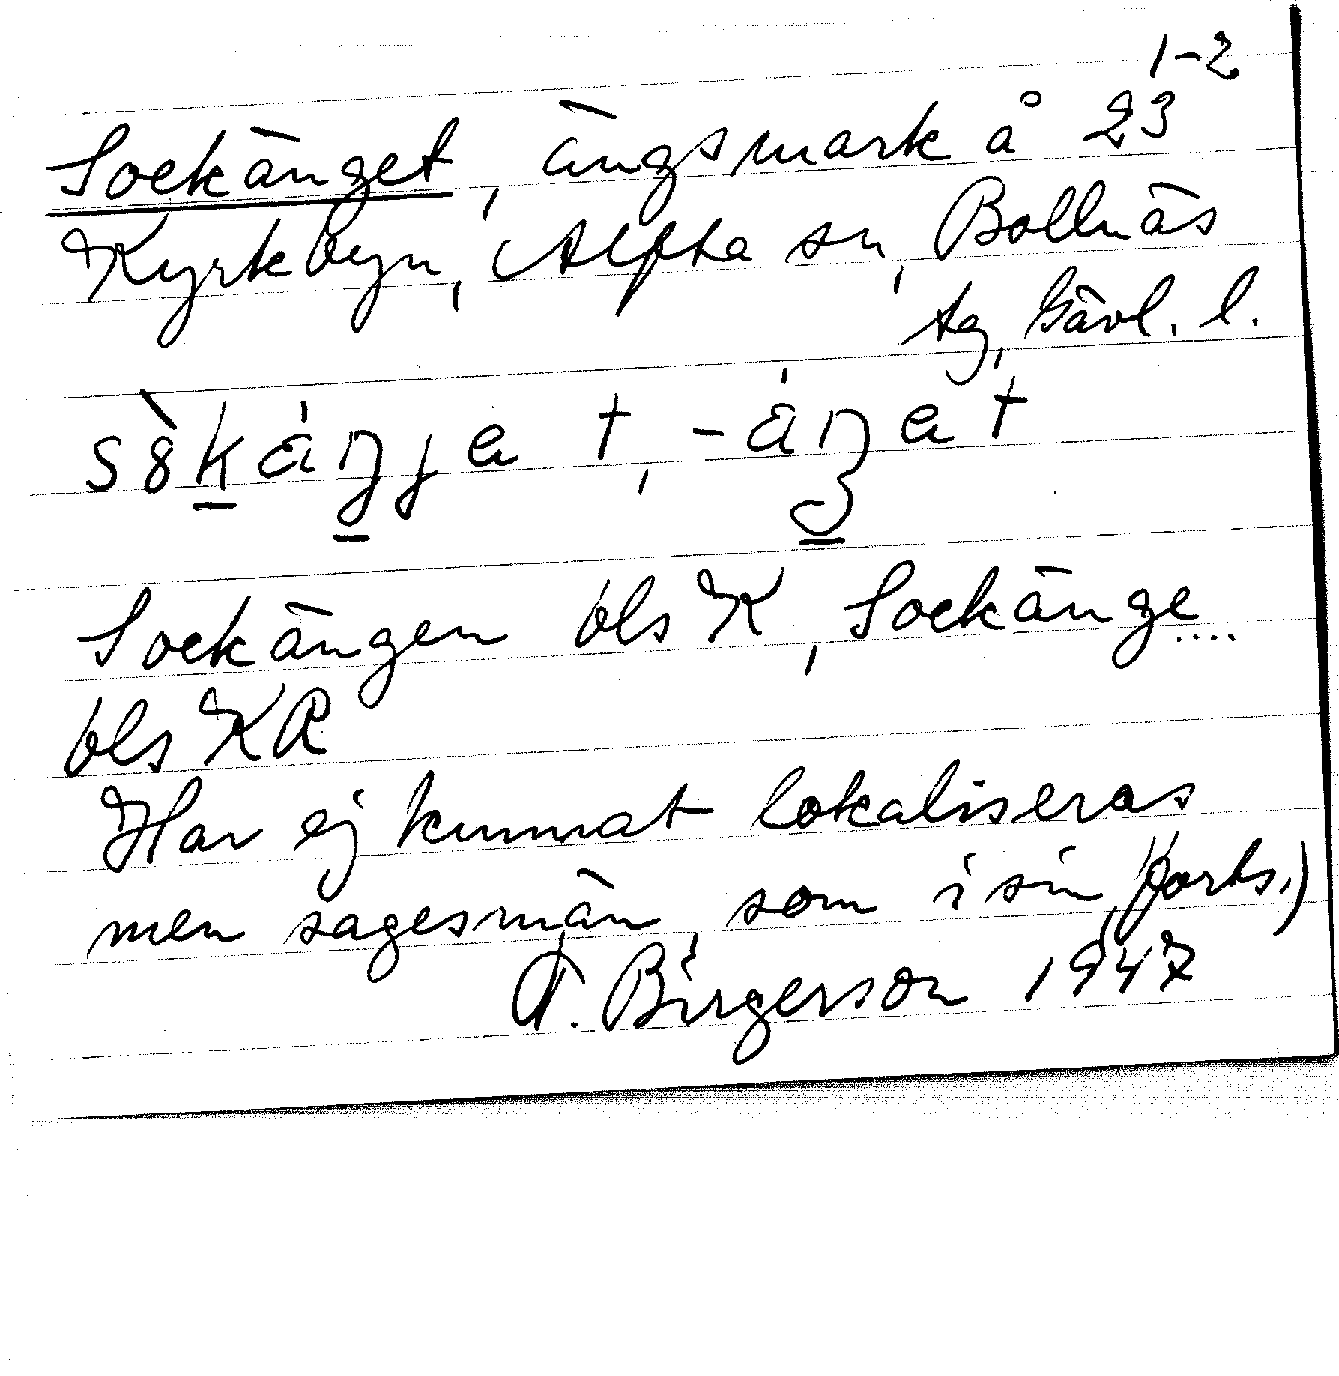 Sockänget, ängsmark å 23 1-2
Kyrkbyn, Alfta sn, Bollnäs
tg, Gävl. l.
Sockängen bls K, Sockänge....
bls KR
Har ej kunnat lokaliseras
men sagesmän, som i sin (forts.)
T. Birgerson 1947